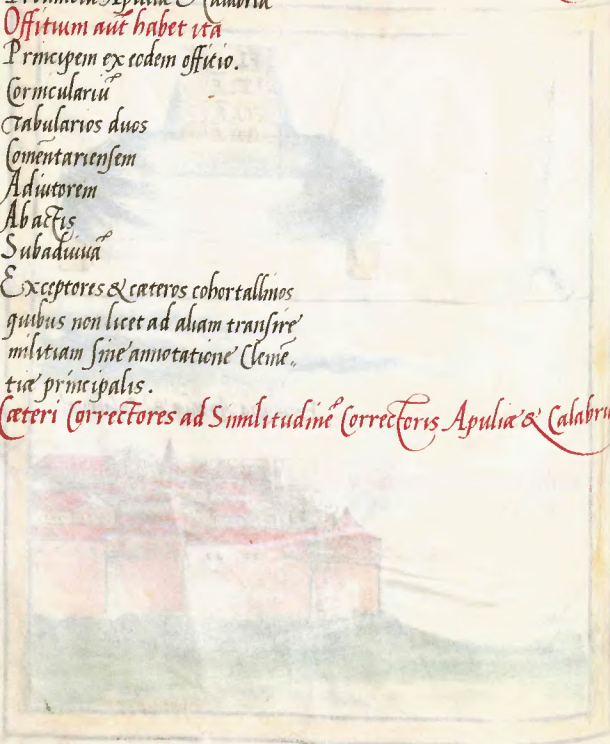 Provincia Apuliæ & Calabria
Offitium aut̄ habet ita
Principem ex eodem offitio.
Corniculariū
Tabularios duos
Comentariensem
Adiutorem
Ab actis
Subadiuuā
Exceptores & cæteros cohortalinos
quibus non licet ad aliam transire
militiam sine annotatione Clemē„
tiæ principalis.
Cæteri Correctores ad Similitudinē Correctoris Apuliæ &